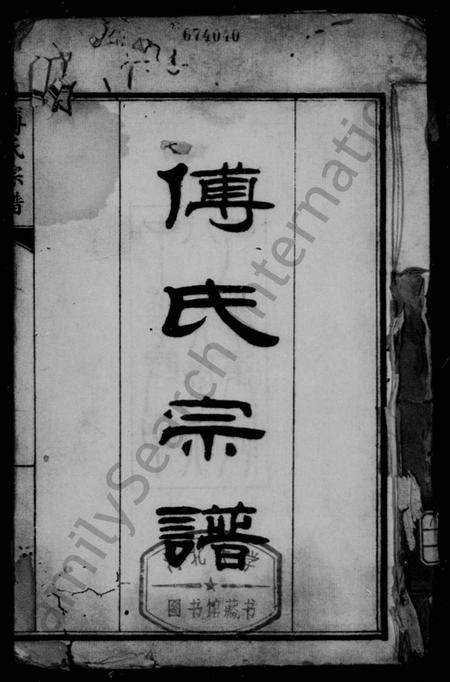 674040
傅氏宗譜
傅氏宗譜
北
图书馆藏书
FamilySearch International